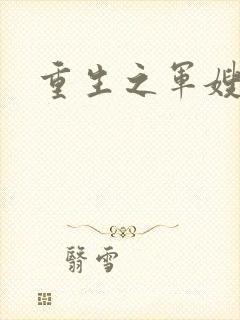 重生之軍嫂
翳雪